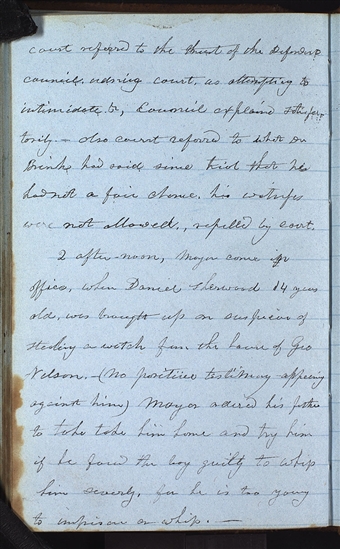 court referred to the threat of the Defendts
council. udsing court, as attempting to
intimidate &c, Council explaind satisfac
torily. — also court referred to what Dr
Brink had said since trial that he
had not a fair chance. his witness
were not allowed., repelled by court.
2 after-noon, Mayor come in
office, when Daniel Sherwood 14 years
old, was brought up on suspicion of
stealing a watch from the house of Geo
Nelson. — (No positive testimony appearing
against him) Mayor advised his father
to take take him home and try him
if he found the boy guilty to whip
him severely, for he is too young
to imprison or whip. —